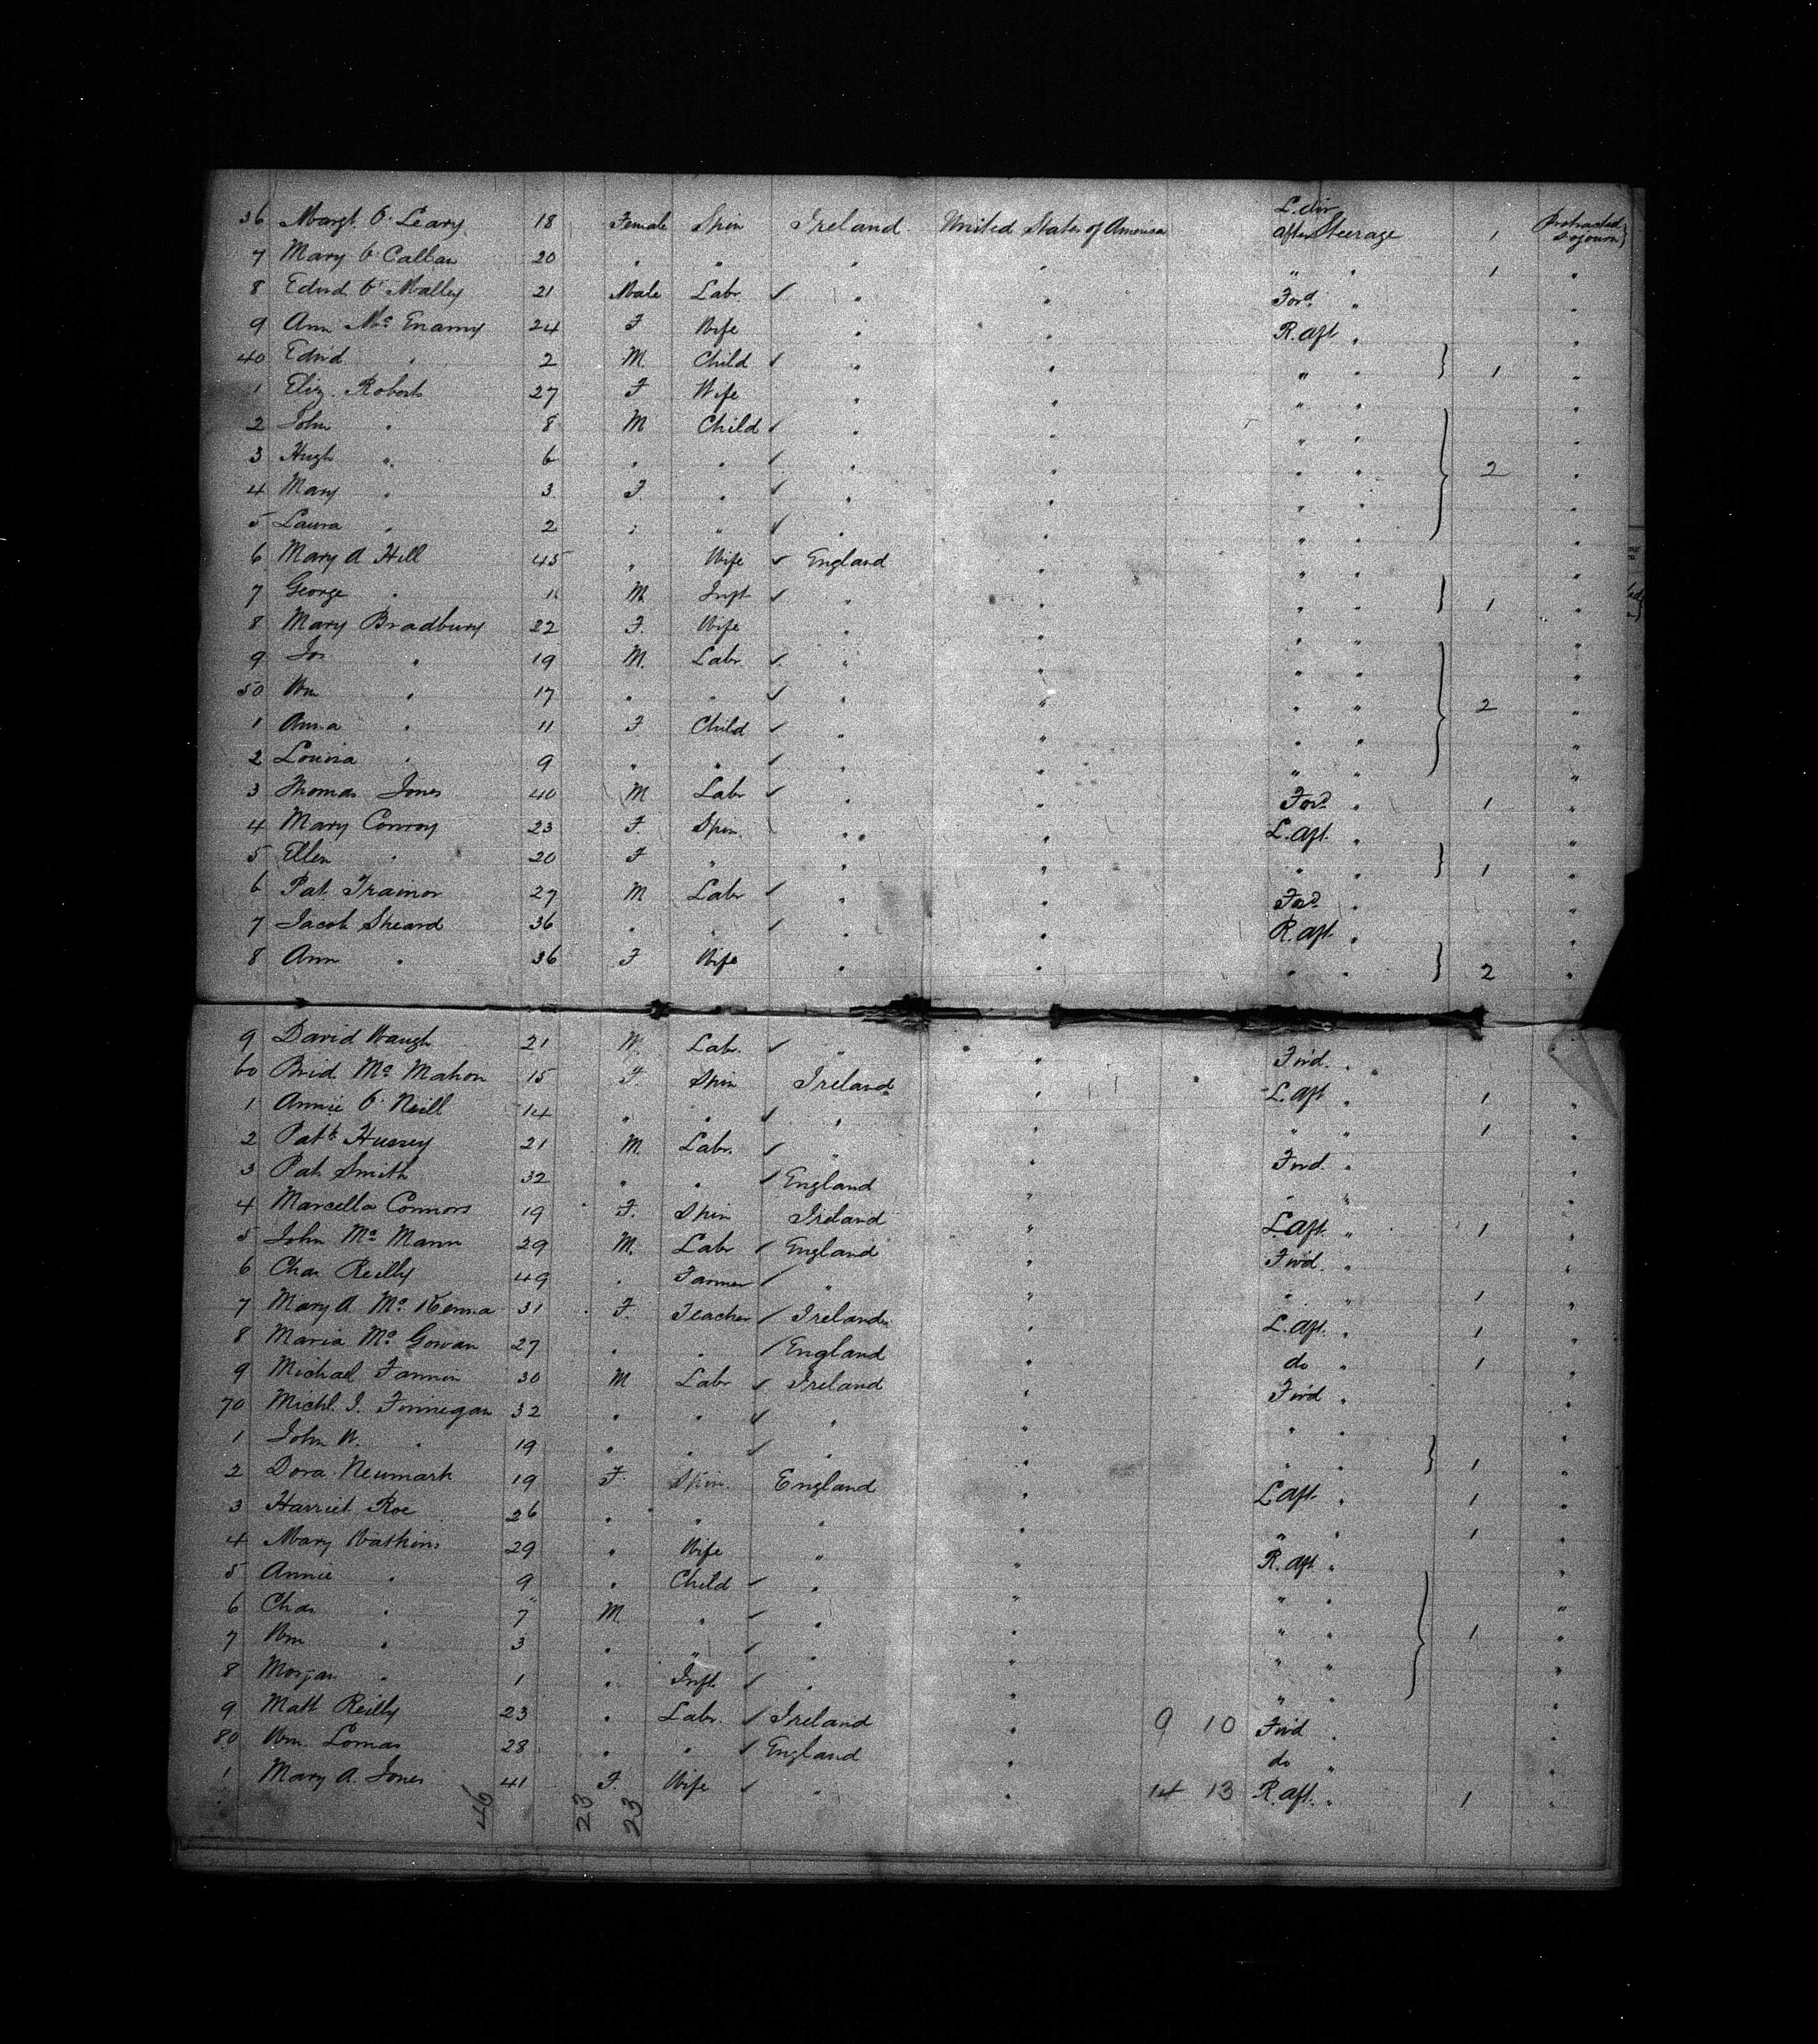 36 Margt. O'Leary 18 Female Spin Ireland United States of America L. div After Steerage 1 (Protracted Sojourn)
7 Mary O'Callan 20 " " " " " " 1 "
8 Edwd. O'Malley 21 Male Labr ✓ " " Ford. " "
9 Ann Mc Enamy 24 F Wife " " R. aft " "
40 Edwd " 2 M. Child ✓ " " " " } 1 "
1 Eliz. Roberts 27 F Wife " " " " "
2 John " 8 M Child ✓ " " " " "
3 Hugh " 6 " " ✓ " " " " } 2 "
4 Mary " 3 F. " ✓ " " " " "
5 Laura " 2 " " ✓ " " " " "
6 Mary A Hill 45 " Wife ✓ England " " " "
7 George " M Inft ✓ " " " " } 1 "
8 Mary Bradbury 22 F. Wife " " " " "
9 Jos " 19 M. Labr ✓ " " " " "
50 Wm " 17 " " ✓ " " " " } 2 "
1 Anna " 11 F Child ✓ " " " " "
2 Louisa " 9 " " ✓ " " " " "
3 Thomas Jones 40 M Labr ✓ " " Ford " 1 "
4 Mary Conroy 23 F. Spin " " L. Aft. " "
5 Ellen " 20 F " " " " " } 1 "
6 Pat Trainor 27 M Labr ✓ " " Ford " "
7 Jacob Sheard 36 " " ✓ " " R. Aft. " "
8 Ann " 36 F Wife " " " " } 2 "
9 David Waugh 21 M. Labr. ✓ " " Fwd. "
60 Brid. Mc Mahon 15 F Spin Ireland " L. Aft " 1 "
1 Annie O'Neill 14 " " ✓ " " " " 1 "
2 Patk Hussey 21 M. Labr. ✓ " " Fwd. " "
3 Pat Smith 32 " " ✓ England " " " "
4 Marcella Connors 19 F. Spin Ireland " L. Aft. " 1 "
5 John Mc Mann 29 M. Labr ✓ England " Fwd. " "
6 Chas Reilly 49 " Farmer ✓ " " " " 1 "
7 Mary A. Mc Kenna 31 F. Teacher ✓ Ireland " L. Aft. " 1 "
8 Maria Mc Gowan 27 " " ✓ England " do " 1 "
9 Michael Fannin 30 M Labr ✓ Ireland " Fwd " "
70 Michl. J. Finnegan 32 " " ✓ " " " " "
1 John W. " 19 " " ✓ " " " " } 1 "
2 Dora Neumark 19 F. Spin. England " L Aft. " 1 "
3 Harriet Roe 26 " " " " " " 1 "
4 Mary Watkins 29 " Wife " " R. Aft " "
5 Annie " 9 " Child ✓ " " " " "
6 Chas " 7 M. " ✓ " " " " "
7 Wm " 3 " " ✓ " " " " } 1 "
8 Morgan " 1 " Inft. ✓ " " " " "
9 Matt Reilly 23 " Labr. ✓ Ireland " 9 10 Fwd " "
80 Wm. Lomas 28 " " ✓ England " do " "
1 Mary A. Jones 41 F. Wife ✓ " " 14 13 R. Aft. " 1 "
46 23 23